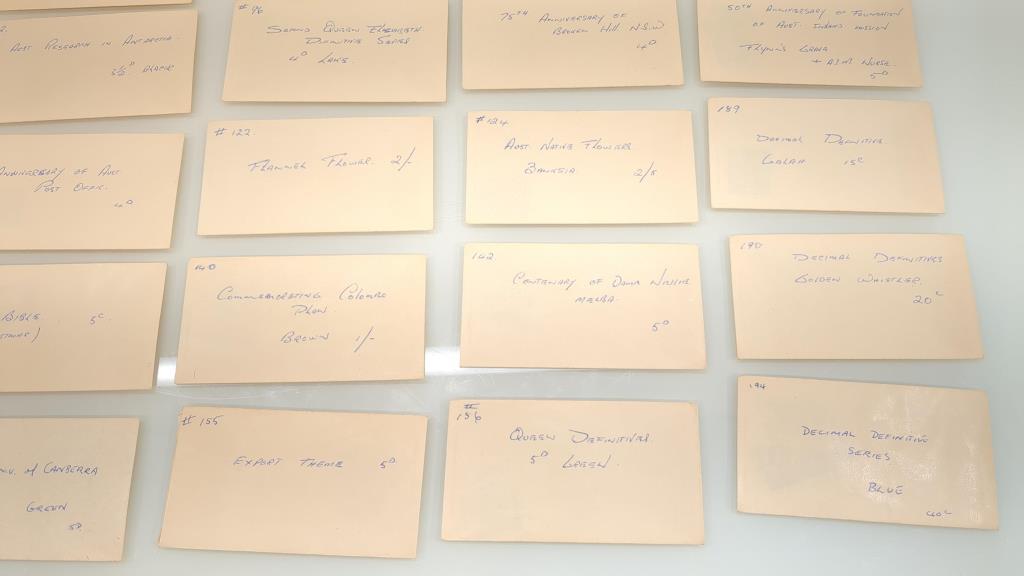 Aust Research in Antarctica.
# 96
Second Queen Elizabeth
Definitive Series
4D Lake.
75TH Anniversary of
Broken Hill N.S.W
4D
50TH Anniversary of Foundation
of Aust. Inland Mission
Flynn's Grave
+ A.I.M Nurse.
5D
Anniversary of Aust
Post Office.
4D
# 122.
Flannel Flower. 2/-
# 124
Aust. Native Flowers
Banksia. 2/5
189
Decimal Definitive
Galah 15c
Bible 5c
140
Commemorating Colombo
Plan.
Brown 1/-
142
Centenary of Dame Nellie
Melba.
5D
190
Decimal Definitives
Golden Whistler.
20c
of Canberra
Green
5D.
# 155
Export Theme 5D.
#
156
Queen Definitives
5D Green.
194
Decimal Definitive
Series
Blue
40c